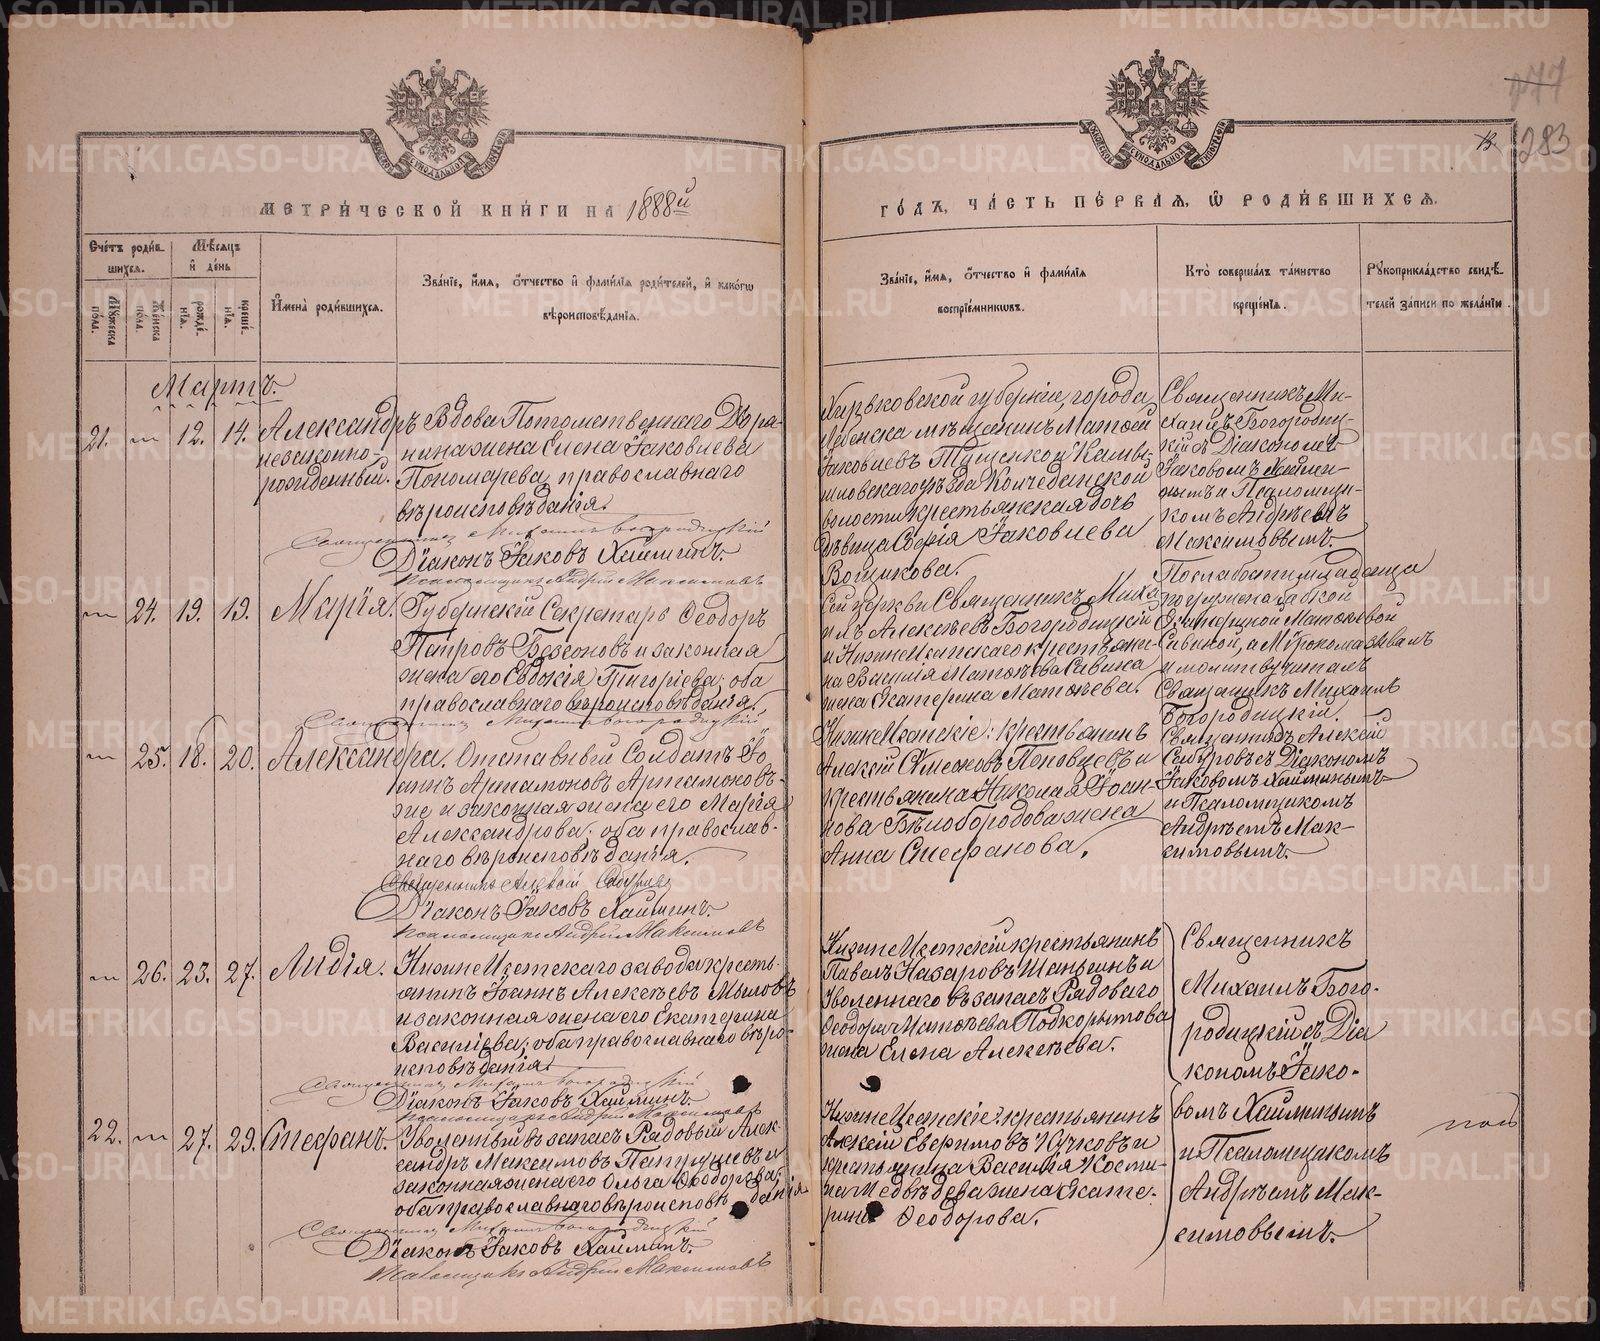 МЕТРИЧЕСКОЙ КНИГИ НА 1888й
ГОДЪ, ЧАСТЬ ПЕРВАЯ, Ѡ РОДИВШИХСЯ.
283
Счетъ родив-
шихся.
Мужеска пола.
Женска пола.
Мѣсяцъ
и день
рожде-
нія.
креще-
нія.
Имена родившихся.
Званіе, имя, отчество и фамилія родителей, и какогѡ
вѣроисповѣданія.
Званіе, имя, отчество и фамилія
воспріемникѡвъ.
Кто совершалъ таинство
крещенія.
Рукоприкладство свидѣ-
телей записи по желанію.
Мартъ.
21. 12. 14.
Александръ
незаконно-
рожденный.
Вдова Потомственнаго Дворя-
нина жена Елена Іаковлева
Пономарева, православнаго
вѣроисповѣданія.
Священникъ Михаилъ Богородицкій
Діаконъ Іаковъ Хайминъ.
Псаломщикъ Андрей Максимовъ
Харьковской губерніи, города
Лебенска мѣщанинъ Матѳей
Іаковлевъ и Камы-
шловскаго уѣзда Колчеданской
волости крестьянская дочь
дѣвица Софія Іаковлева
Вощикова.
Священникъ Ми-
хаилъ Богородиц-
кій съ Діакономъ
Іаковомъ Хайми-
нымъ и Псаломщи-
комъ Андреемъ
Максимовымъ.
24. 19. 19.
Марія.
Губернскій Секретарь Ѳеодоръ
Петровъ Безсоновъ и законная
жена его Евдокія Григорьева; оба
православнаго вѣроисповѣданія.
Священникъ Михаилъ Богородицкій
Сей церкви Священникъ Миха-
илъ Алексѣевъ Богородицкій
и Нижне Исетскаго крестьяни-
на Василія Матѳѣева Савина
жена Екатерина Матѳѣева.
По слабости младенца
погружена бабкой
Екатериной Матѳѣевой
Савиной, а Мѵромъ помазывалъ
и молитву читалъ
Священникъ Михаилъ
Богородицкій.
25. 18. 20.
Александра.
Отставный Солдатъ Іо-
аннъ Артамоновъ Артамоновъ-
же и законная жена его Марія
Александрова; оба православ-
наго вѣроисповѣданія.
Священникъ Алексій
Діаконъ Іаковъ Хайминъ.
Псаломщикъ Андрей Максимовъ
Нижне Исетскіе: крестьянинъ
Алексій Симеоновъ Поповцевъ и
крестьянина Николая Іоан-
нова Бѣлобородова жена
Анна Стефанова.
Священникъ Алексій
съ Діакономъ
Іаковомъ Хайминымъ
и Псаломщикомъ
Андреемъ Мак-
симовымъ.
26. 23. 27.
Лидія.
Нижне Исетскаго завода кресть-
янинъ Іоаннъ Алексѣевъ Мыловъ
и законная жена его Екатерина
Васильева; оба православнаго вѣро-
исповѣданія.
Священникъ Михаилъ Богородицкій
Діаконъ Іаковъ Хайминъ.
Псаломщикъ Андрей Максимовъ
Нижне Исетскій крестьянинъ
Павелъ Назаровъ Шаньгинъ и
Уволеннаго въ запасъ Рядоваго
Ѳеодора Матѳѣева Подкорытова
жена Елена Алексѣева.
Священникъ
Михаилъ Бого-
родицкій съ Діа-
кономъ Іако-
вомъ Хайминымъ
и Псаломщикомъ
Андреемъ Мак-
симовымъ.
22. 27. 29.
Стефанъ.
Уволенный въ запасъ Рядовый Алек-
сандръ Максимовъ Патрушевъ и
законная жена его Ольга Ѳеодорова;
оба православнаго вѣроисповѣданія
Священникъ Михаилъ Богородицкій
Діаконъ Іаковъ Хайминъ.
Псаломщикъ Андрей Максимовъ
Нижне Исетскіе: крестьянинъ
Алексій Евфимовъ Кучковъ и
крестьянина Василія Кости-
на Медвѣдева жена Екате-
рина Ѳеодорова.